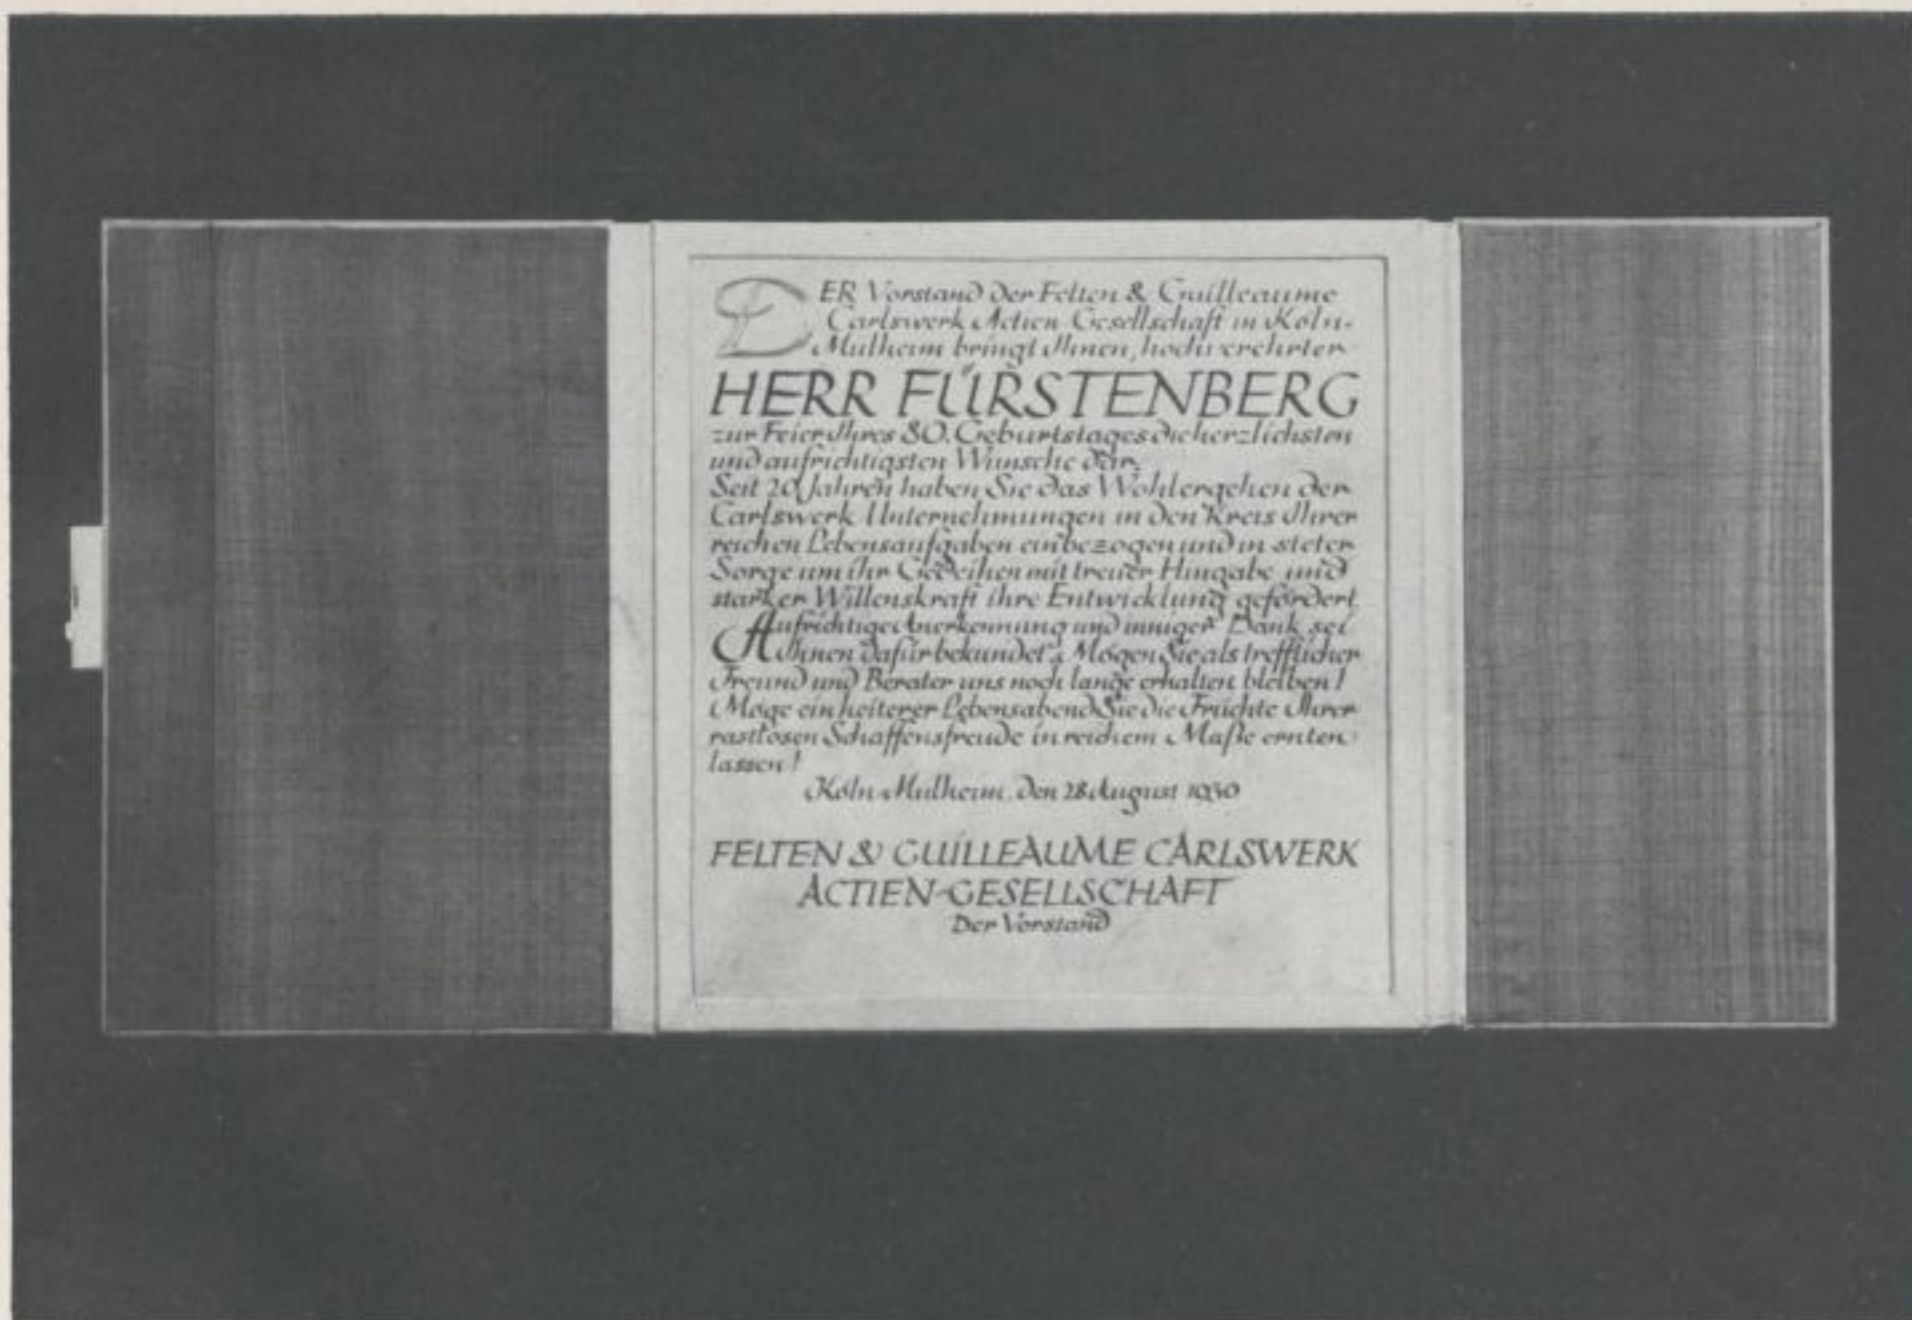 DER Vorstand der Felten & Guilleaume
Carlswerk Actien Gesellschaft in Köln-
Mülheim bringt Ihnen, hochverehrter
HERR FÜRSTENBERG
zur Feier Ihres 80. Geburtstages die herzlichsten
und aufrichtigsten Wünsche dar.
Seit 20 Jahren haben Sie das Wohlergehen der
Carlswerk Unternehmungen in den Kreis Ihrer
reichen Lebensaufgaben einbezogen und in steter
Sorge um ihr Gedeihen mit treuer Hingabe und
starker Willenskraft ihre Entwicklung gefördert
Aufrichtige Anerkennung und inniger Dank sei
Ihnen dafür bekundet. Mögen Sie als trefflicher
Freund und Berater uns noch lange erhalten bleiben!
Möge ein heiterer Lebensabend Sie die Früchte Ihrer
rastlosen Schaffensfreude in reichem Maße ernten
lassen!
Köln-Mülheim, den 28 August 1930
FELTEN & GUILLEAUME CARLSWERK
ACTIEN-GESELLSCHAFT
Der Vorstand